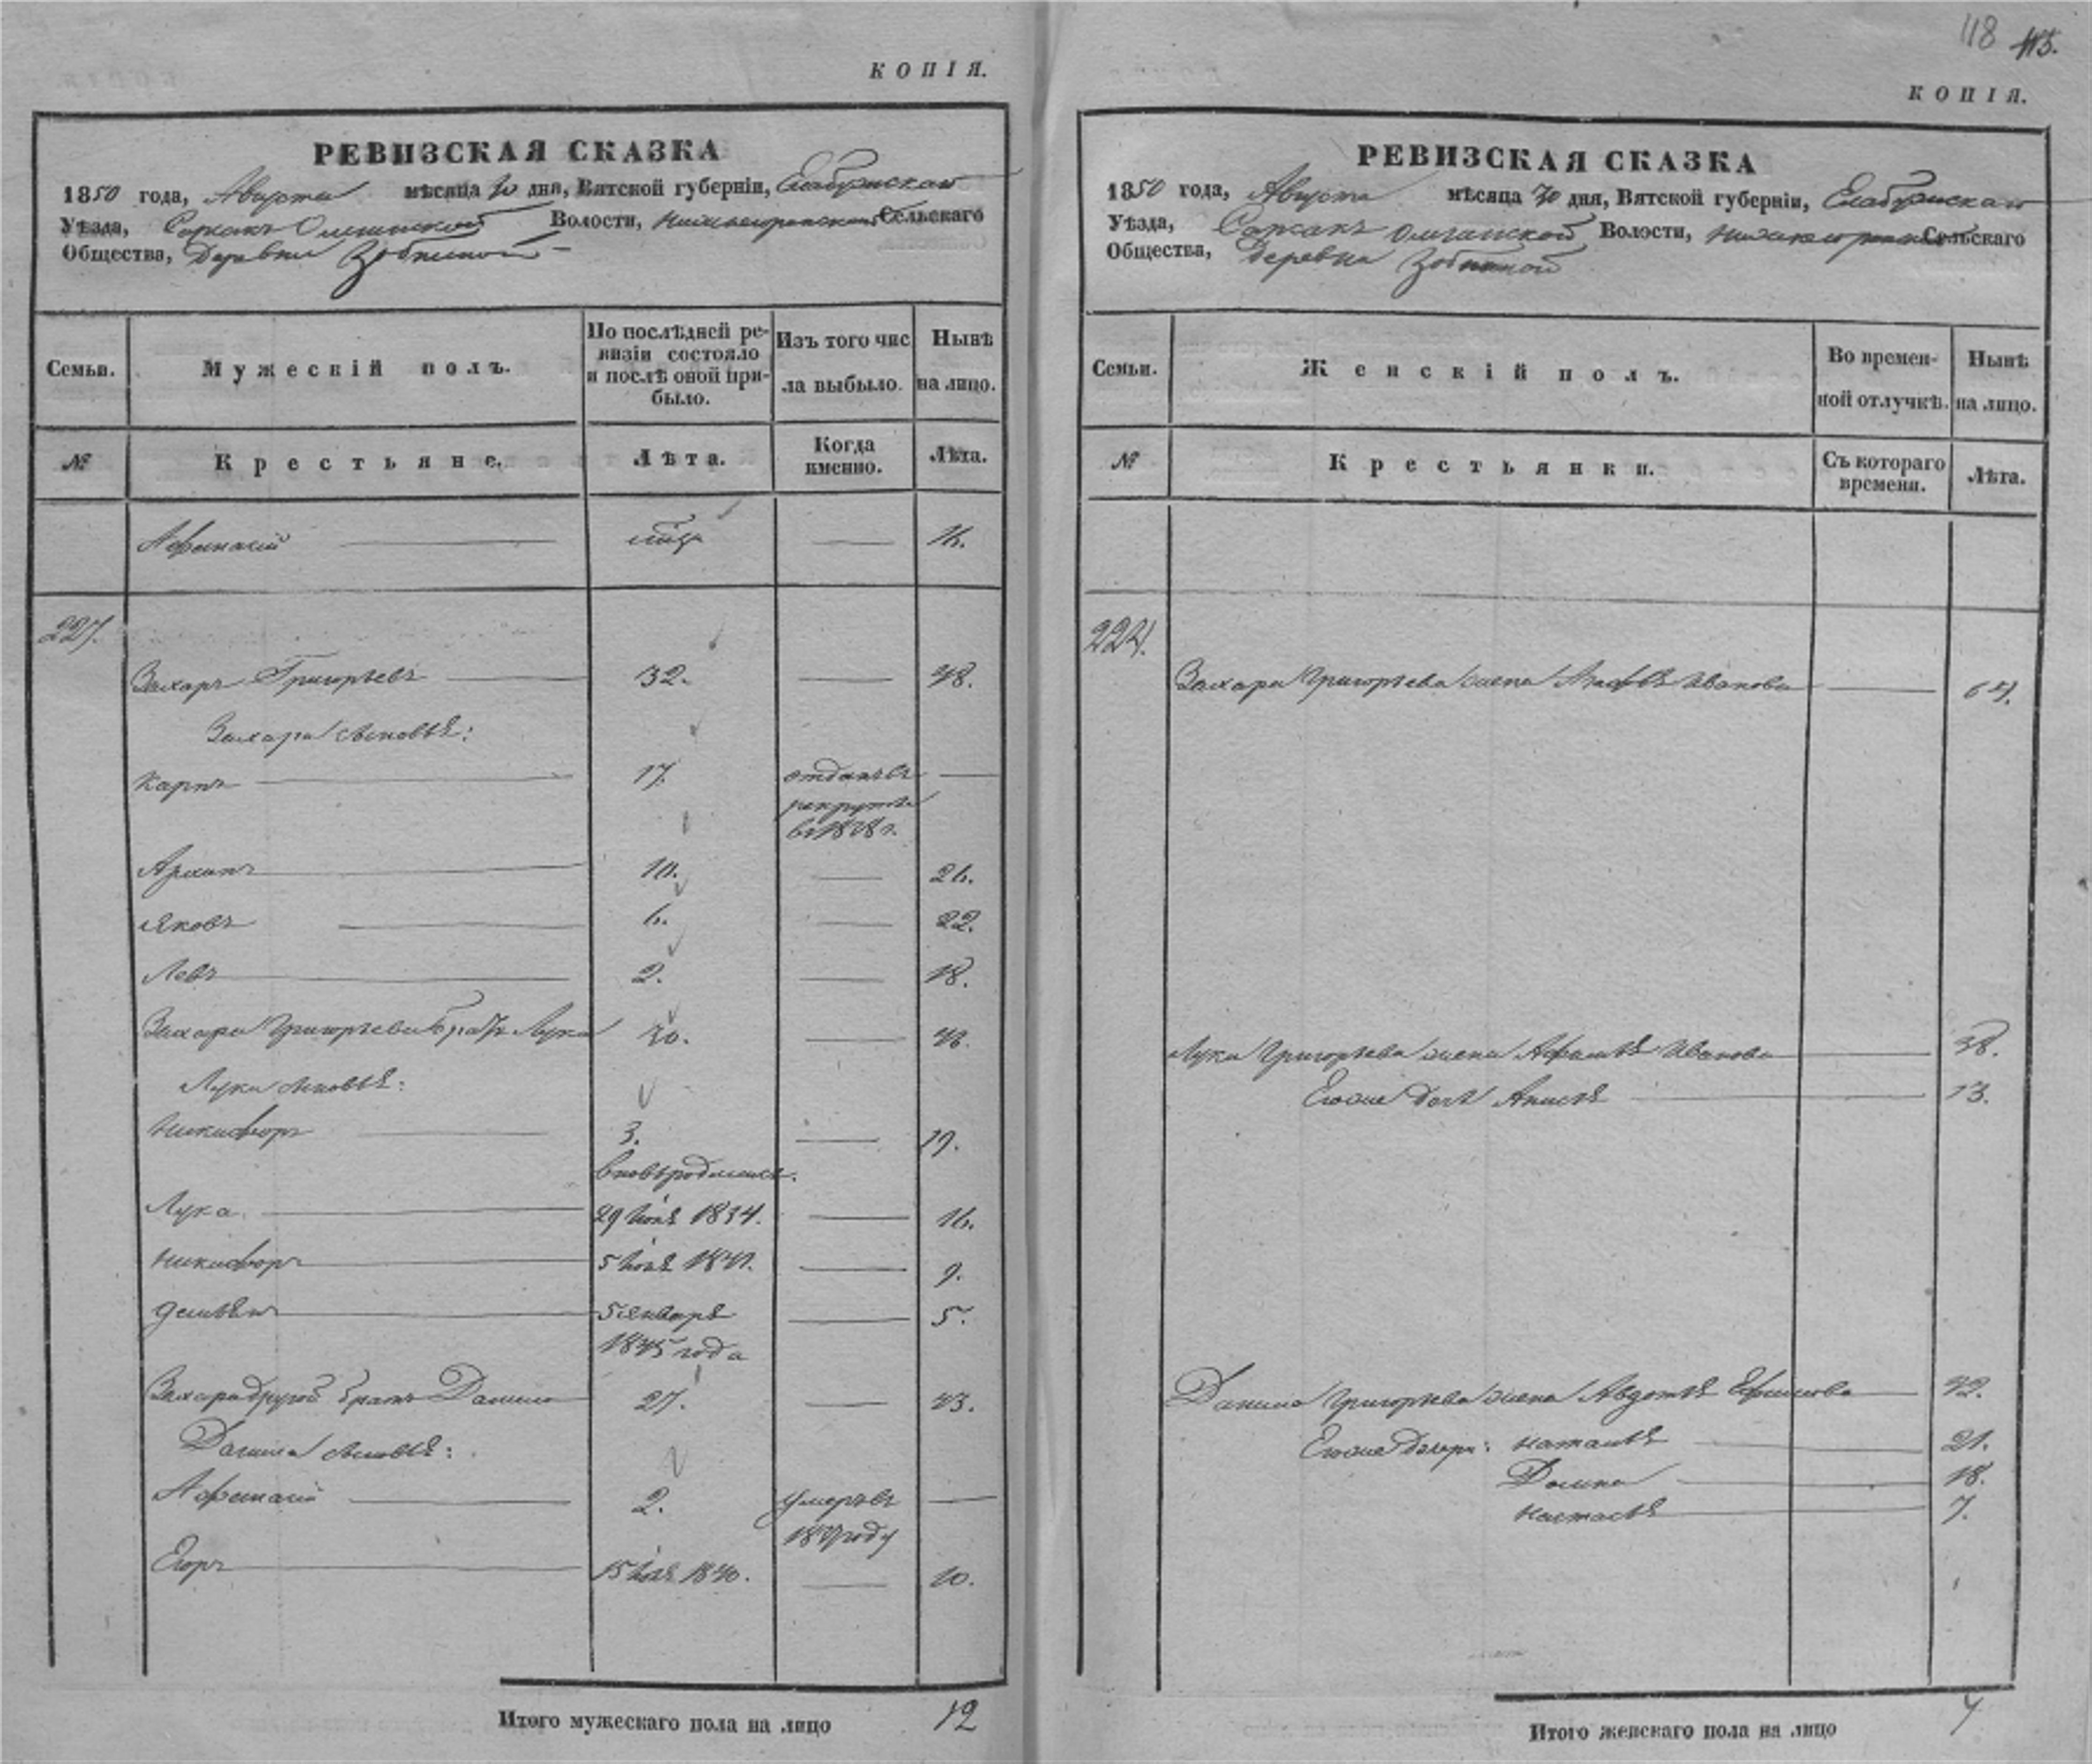 118 115.
КОПІЯ.
РЕВИЗСКАЯ СКАЗКА
1850 года, Августа мѣсяца 30 дня, Вятской губерніи, Елабужскаго
Уѣзда, Волости, Сельскаго
Общества, Деревни
Семьи. Мужескій полъ. По послѣдней ревизіи состояло и послѣ оной прибыло. Изъ того числа выбыло. Нынѣ на лицо.
№ Крестьяне. Лѣта. Когда именно. Лѣта.
Афанасій — — 16.
227.
Захаръ Григорьевъ — 32. — 48.
Захара сыновья:
Карпъ — 17. отданъ въ —
рекруты
в 1838 г.
Архипъ — 10. — 26.
Яковъ — 6. — 22.
Левъ — 2. — 18.
Захара Григорьева братъ Лука 30. — 46.
Луки сыновья:
Никифоръ — 3. — 19.
вновьрожден.
Лука — 29 1834. — 16.
Никифоръ — 5 1841. — 9.
5 января — 5.
1845 года
Захара другой братъ Данило 27. — 43.
Данила сыновья:
Афанасій — 2. умеръ въ —
году
Егоръ — 15 1840. — 10.
Итого мужескаго пола на лицо 12
КОПІЯ.
РЕВИЗСКАЯ СКАЗКА
1850 года, Августа мѣсяца 30 дня, Вятской губерніи, Елабужскаго
Уѣзда, Волости, Сельскаго
Общества, Деревни
Семьи. Женскій полъ. Во временной отлучкѣ. Нынѣ на лицо.
№ Крестьянки. Съ котораго времени. Лѣта.
227.
Захара Григорьева жена Иванова —
Луки Григорьева жена Иванова — 38.
Егоже дочь Анисья — 13.
Данила Григорьева жена Авдотья Ефимова — 42.
Егоже дочери: Наталья — 21.
Домна — 18.
Настасья — 7.
Итого женскаго пола на лицо 7